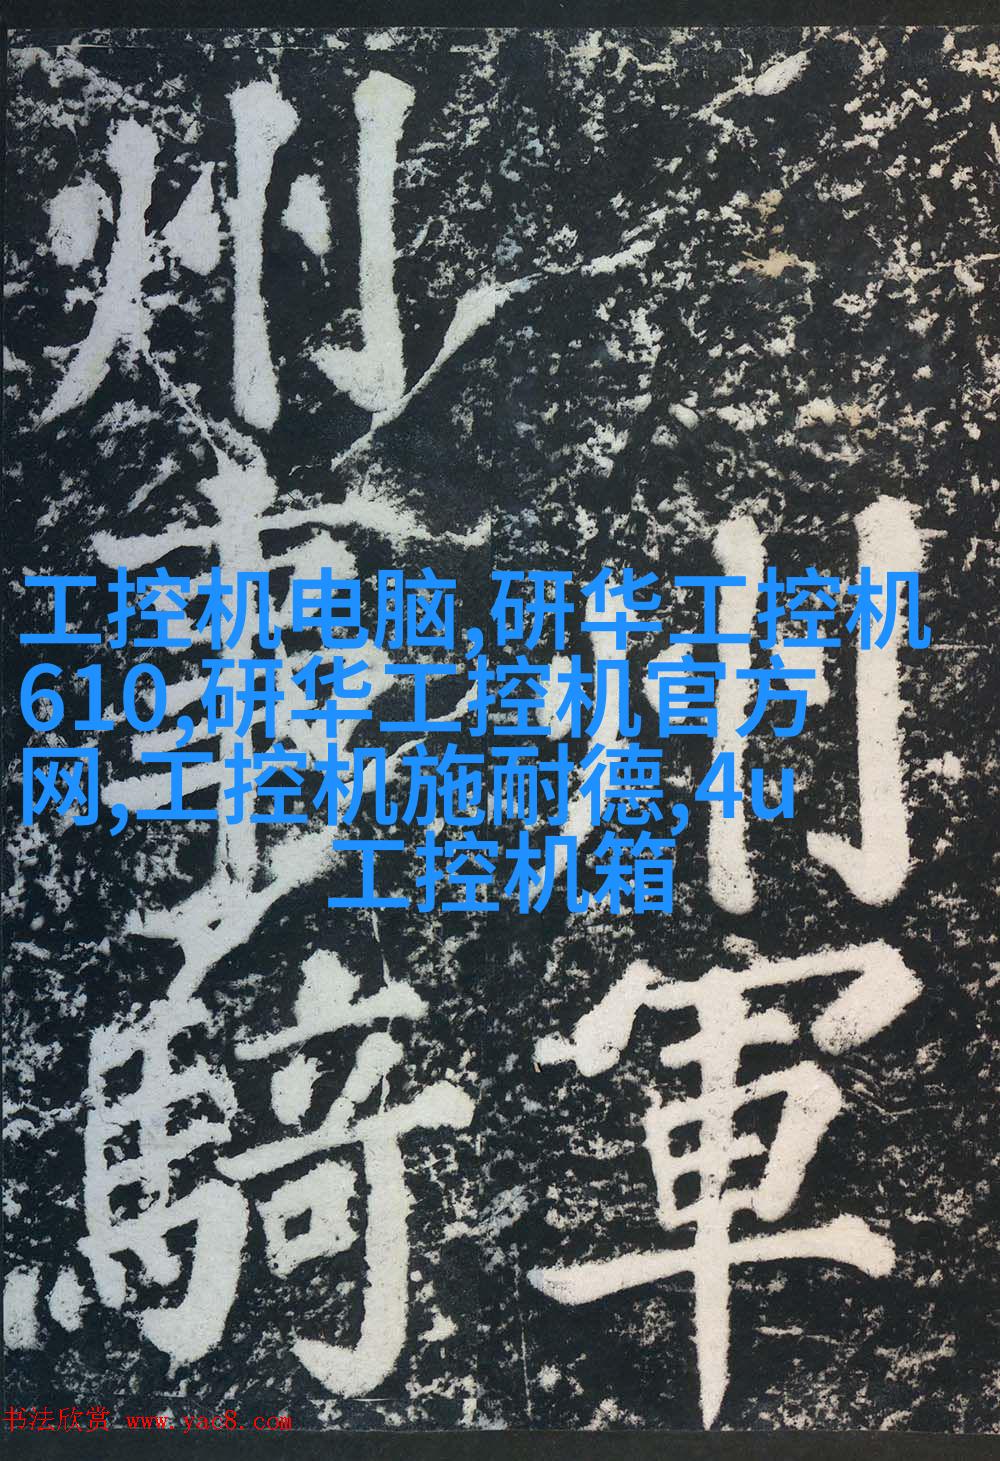 州軍
州事
騎
工控机电脑,研华工控机
610,研华工控机官方
网,工控机施耐德,4u
工控机箱
书法欣赏 www.yac8.com